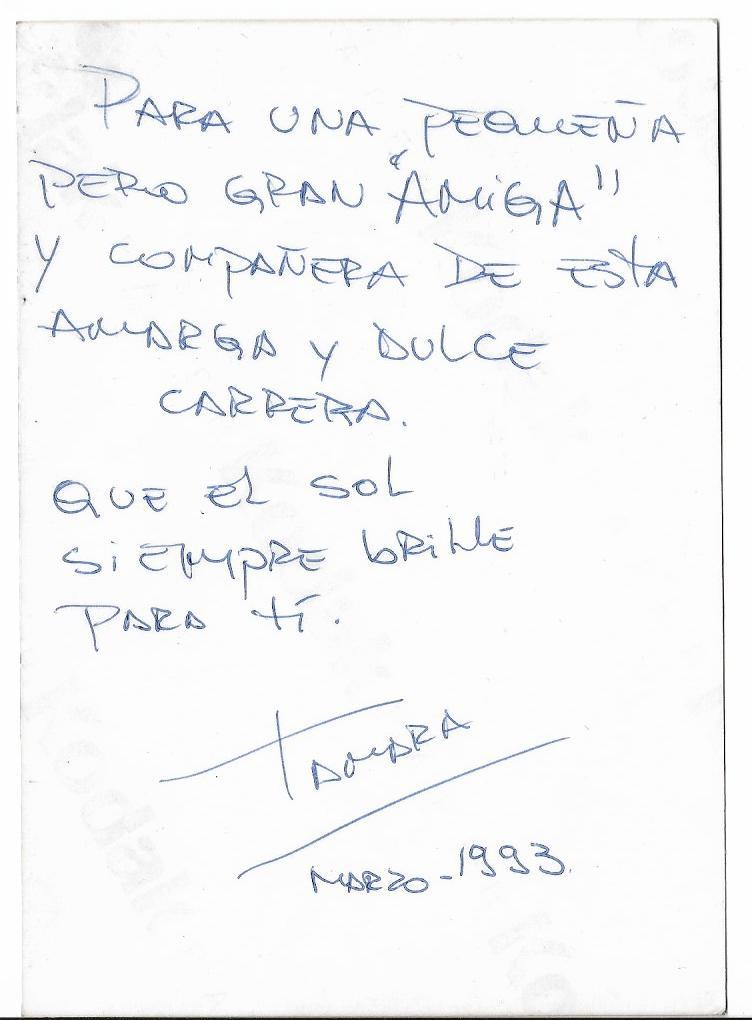 PARA UNA PEQUEÑA
PERO GRAN "AMIGA"
Y COMPAÑERA DE ESTA
AMARGA Y DULCE
CARRERA.
QUE EL SOL
SIEMPRE BRILLE
PARA TÍ.
TAMARA
MARZO-1993.